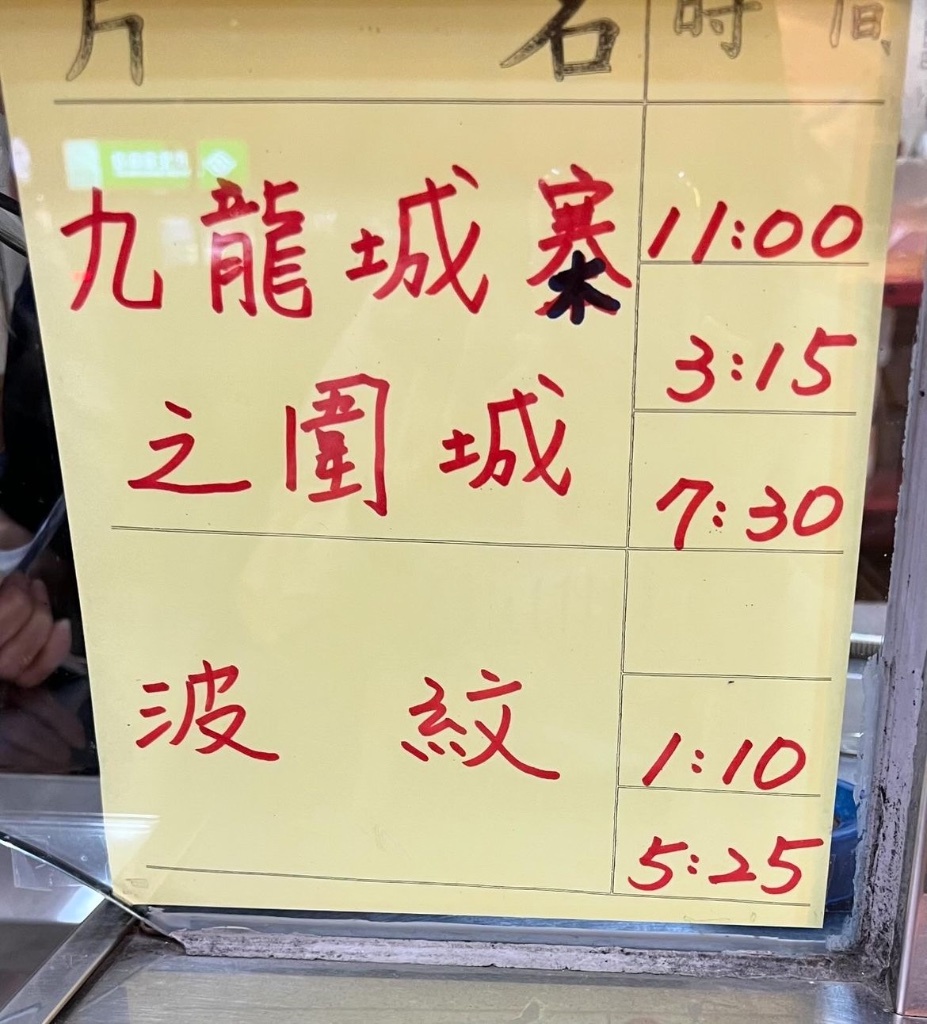 片 名 時 間
九龍城寨 11:00
3:15
之圍城 7:30
波 紋 1:10
5:25